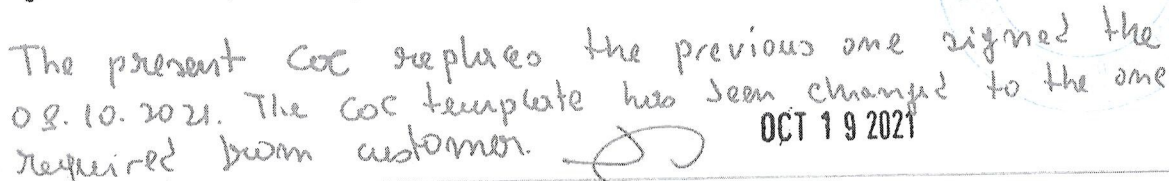 The present CoC replaces the previous one signed the
08.10.2021. The CoC template has been changed to the one
required from customer. OCT 19 2021